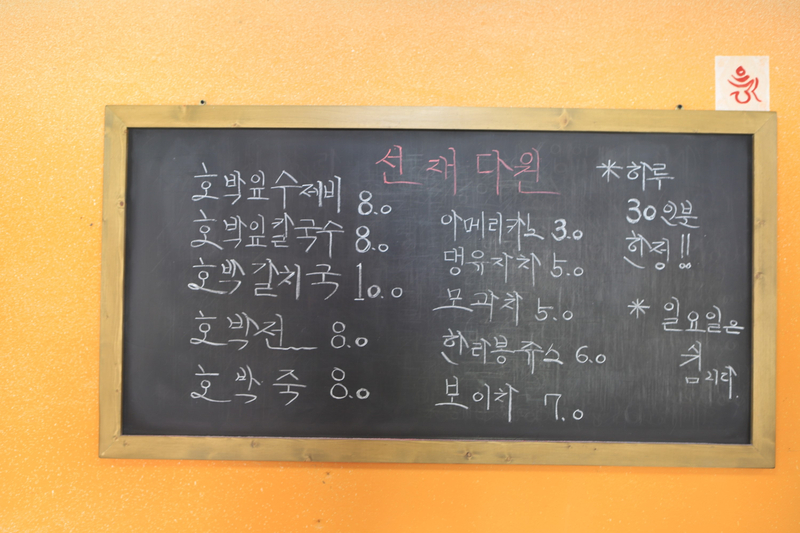 선재다원
호박잎수제비 8.0
호박잎칼국수 8.0
호박갈치국 10.0
호박전 8.0
호박죽 8.0
아메리카노 3.0
댕유자차 5.0
모과차 5.0
한라봉쥬스 6.0
보이차 7.0
*하루
30인분
한정!!
* 일요일은
쉽
니다.